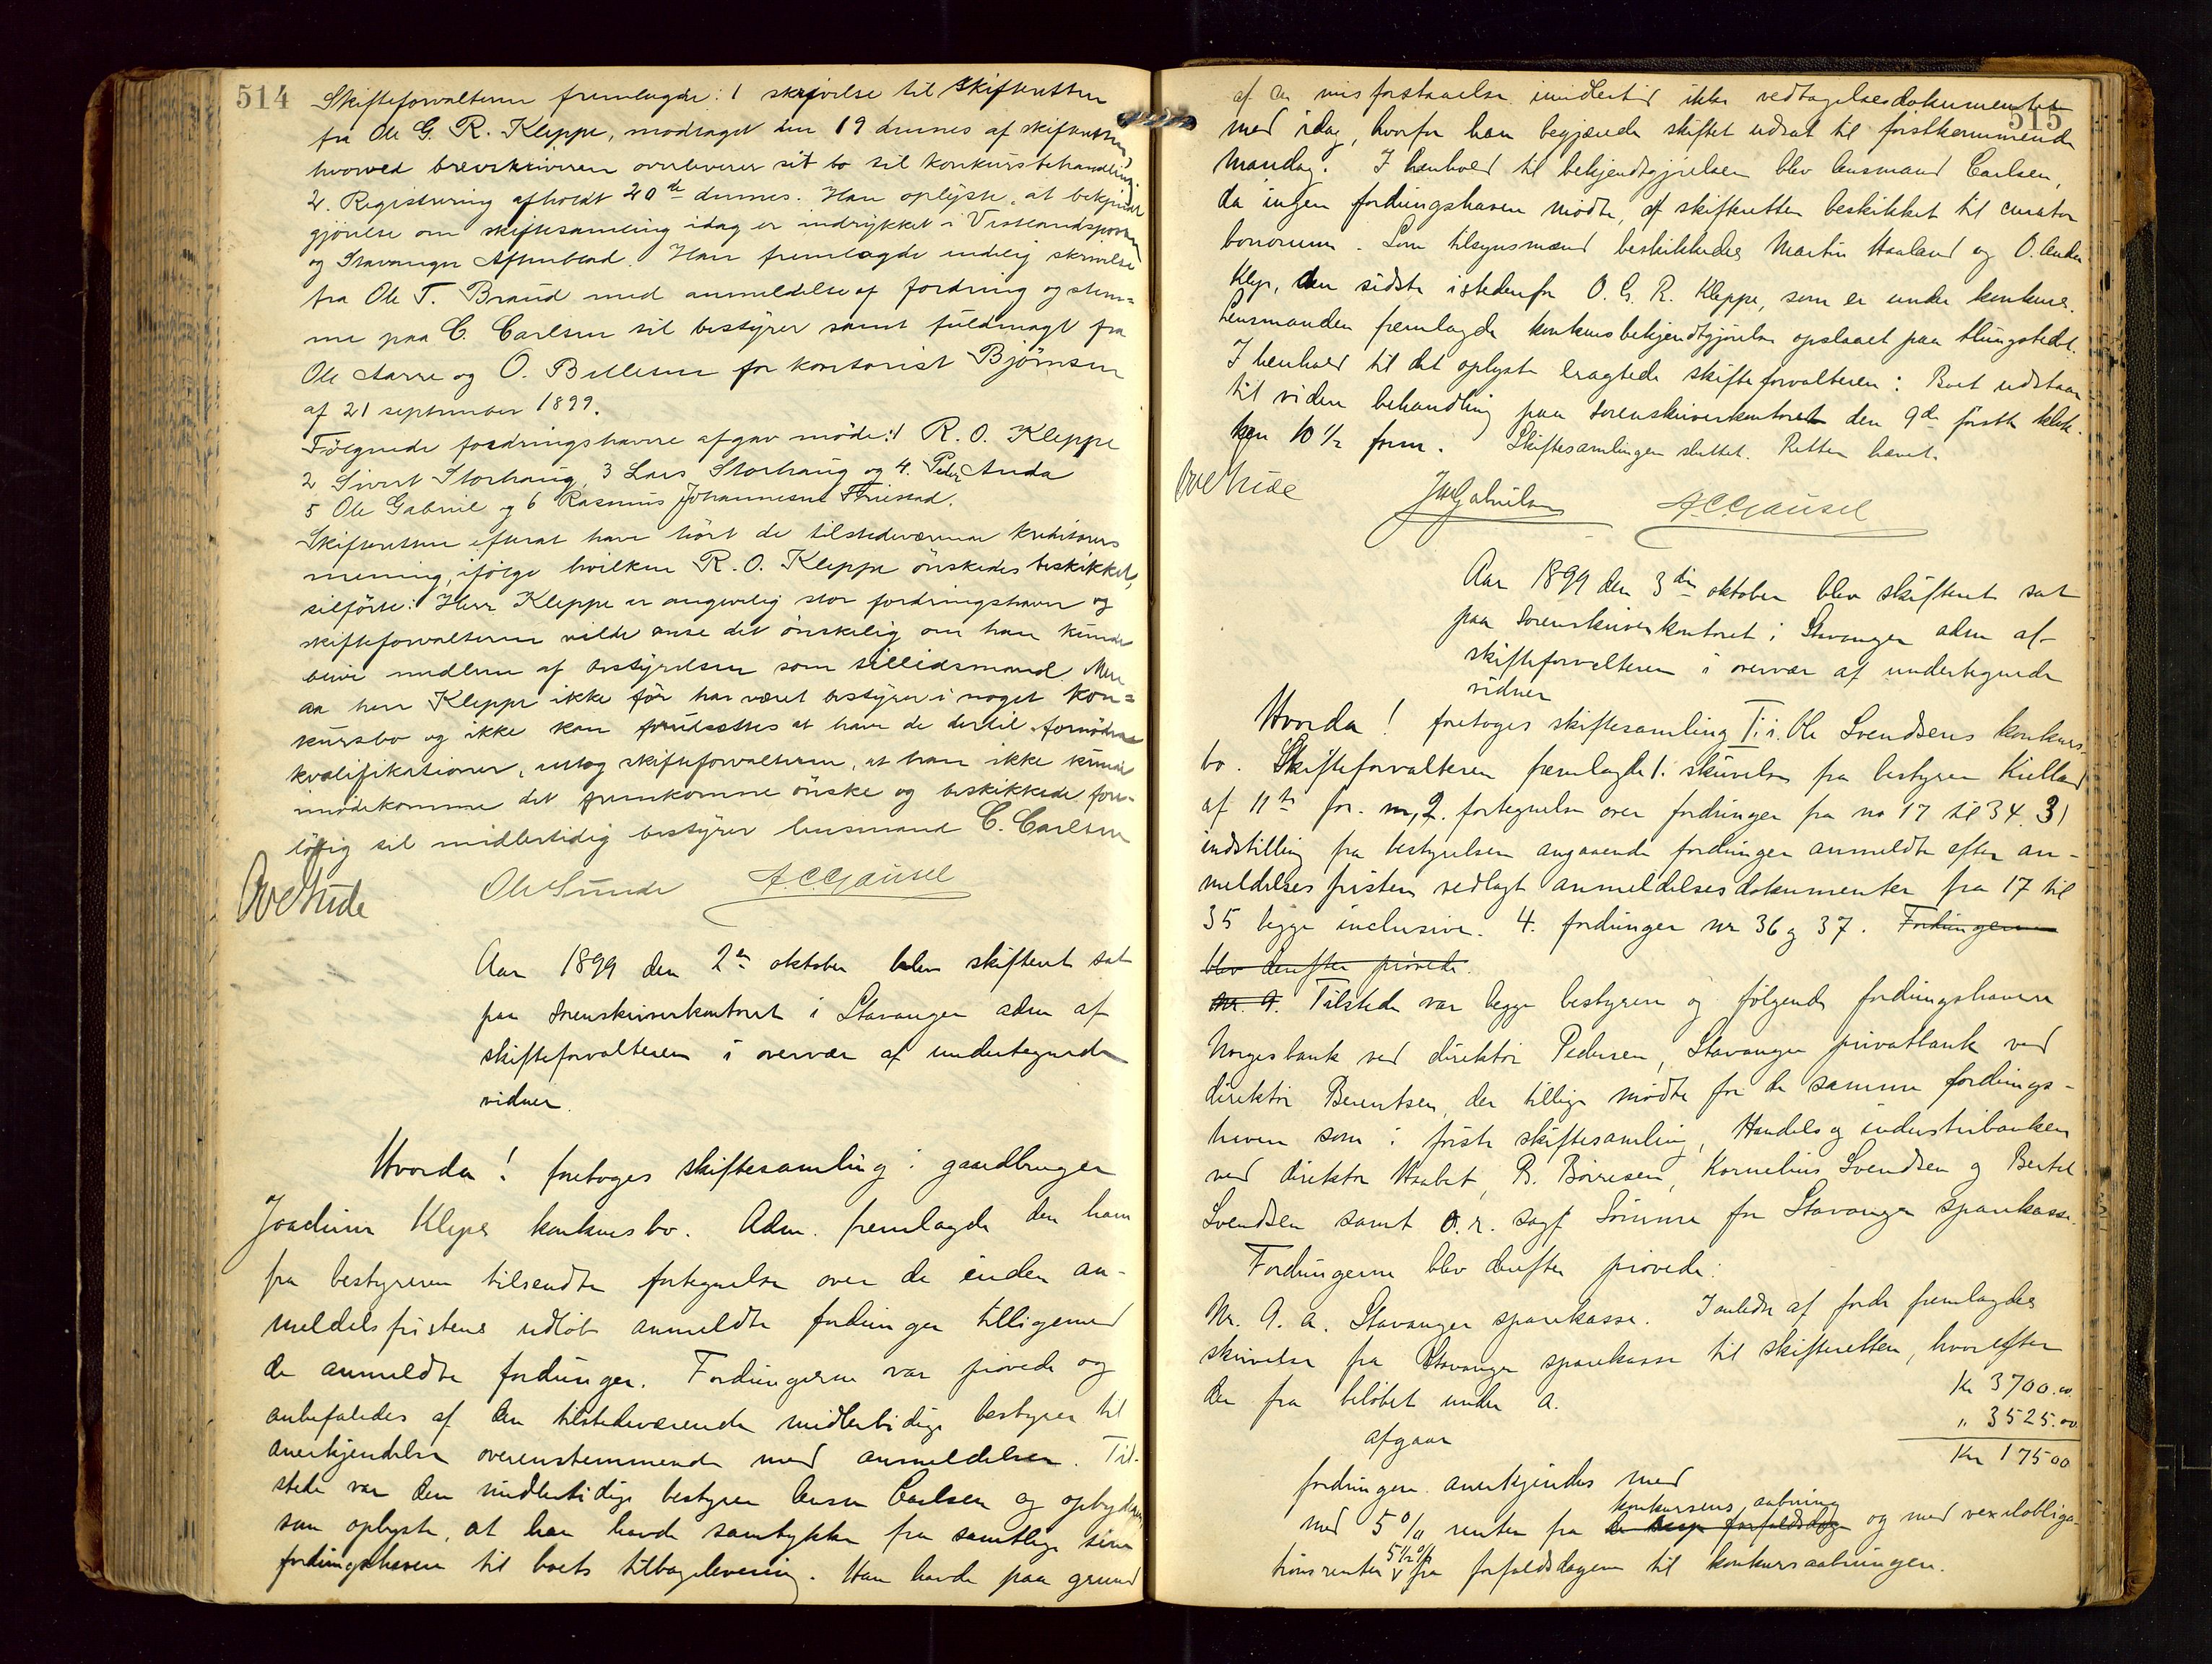 514
Skifteforvalteren fremlagde: 1 skrivelse til skifteretten
fra Ole G. R. Kleppe, modtaget den 19 dennes af skifteretten,
hvorved brevskriveren overleverer sit bo til konkursbehandling.
2. Registrering afholdt 20de dennes. Han oplyste, at bekjendt
gjørelse om skiftesamling idag er indrykket i Vestlandsposten
og Stavanger Aftenblad. Han fremlagde endelig skrivelse
fra Ole T. Braud med anmeldelse af fordring og stem=
me paa C. Carlsen til bestyrer samt fuldmagt fra
Ole Aarre og O. Bellesen for kontorist Bjørnsen
af 21 september 1899.
Følgende fordringshavere afgav møde: 1 R. O. Kleppe
2 Sivert Storhaug, 3 Lars Storhaug og 4. Peder Anda
5 Ole Gabriel og 6 Rasmus Johannesen Friestad.
Skifteretten efterat have hørt de tilstedeværende kreditorers
mening, ifølge hvilken R. O. Kleppe ønskedes beskikket,
tilførte: Herr Kleppe er angivelig stor fordringshaver og
skifteforvalteren vilde anse det ønskelig om han kunde
blive medlem af bestyrelsen som tillidsmand Men
da herr Kleppe ikke før har været bestyrer i noget kon=
kursbo og ikke kan forudsættes at have de dertil fornødne
kvalifikationer, antog skifteforvalteren, at han ikke kunde
imødekomme det fremkomne ønske og beskikkede fore=
løbig til midlertidig bestyrer lensmand C. Carlsen
Ove Hude Ole Sunde A. C. Gausel
Aar 1899 den 2en oktober blev skifteret sat
paa sorenskriverkontoret i Stavanger adm af
skifteforvalteren i overvær af undertegnede
vidner.
Hvorda! foretoges skiftesamling i gaardbruger
Joachim Kleps konkursbo. Adm. fremlagde den ham
fra bestyreren tilsendte fortegnelse over de inden an-
meldelsfristens udløb anmeldte fordringer tilligemed
de anmeldte fordringer. Fordringerne var prøvede og
anbefaledes af den tilstedeværende midlertidige bestyrer til
anerkjendelse overenstemmende med anmeldelsen. Til-
stede var den midlertidige bestyrer lensm Carlsen og opbyderen,
som oplyste, at han havde samtykke fra samtlige sine
fordringshavere til boets tilbagelevering. Han havde paa grund
515
af en misforstaaelse imidlertid ikke vedtagelsesdokumentet
med idag, hvorfor han begjærede skiftet udsat til førstkommende
Mandag. I henhold til bekjendtgjørelsen blev lensmand Carlsen,
da ingen fordringshaver mødte, af skifteretten beskikket til curator
bonorum. Som tilsynsmænd beskikkedes Martin Haaland og O. Anda
Klep, den sidste istedenfor O. G. R. Kleppe, som er under konkurs.
Lensmanden fremlagde konkursbekjendtgjørelse opslaaet paa thingstedet.
I henhold til det oplyste eragtede skifteforvalteren: Boet udstaar
til videre behandling paa sorenskriverkontoret den 9de førstk klok-
ken 10 1/2 form. Skiftesamlingen sluttet. Retten hævet.
Ove Hude JMGabrielsen A. C. Gausel
Aar 1899 den 3die oktober blev skifteret sat
paa sorenskriverkontoret i Stavanger adm af
skifteforvalteren i overvær af undertegnede
vidner
Hvorda! foretoges skiftesamling II i Ole Svendsens konkurs-
bo. Skifteforvalteren fremlagde 1. skrivelse fra bestyrer Kielland
af 11te for. m, 2. fortegnelse over fordringer fra no 17 til 34. 3)
indstilling fra bestyrelsen angaaende fordringer anmeldte efter an-
meldelsesfristen vedlagt anmeldelsesdokumenter fra 17 til
35 begge inclusive. 4. fordringer nr 36 og 37. Fordringerne
blev derefter prøvede.
Nr. 9. Tilstede var begge bestyrere og følgende fordringshavere
Norges bank ved direktør Pedersen, Stavanger privatbank ved
direktør Berentsen, der tillige mødte for de samme fordrings-
havere som i første skiftesamling, Handels og industribanken
ved direktør Haabet, B. Børresen, Kornelius Svendsen og Bertel
Svendsen samt o. r. sagf Sømme for Stavanger sparekasse.
Fordringerne blev derefter prøvede:
Nr. 9. a. Stavanger sparekasse. I anledn af fordr fremlagdes
skrivelse fra Stavanger sparekasse til skifteretten, hvorefter
der fra beløbet under a. Kr 3700.00
afgaar " 3525.00
Kr 17500
fordringen anerkjendes med
med 5 % renter fra de resp forfaldsdage konkursens aabning og med vexelobliga-
tionsrenter 5 1/2 % fra forfaldsdagene til konkursaabningen.